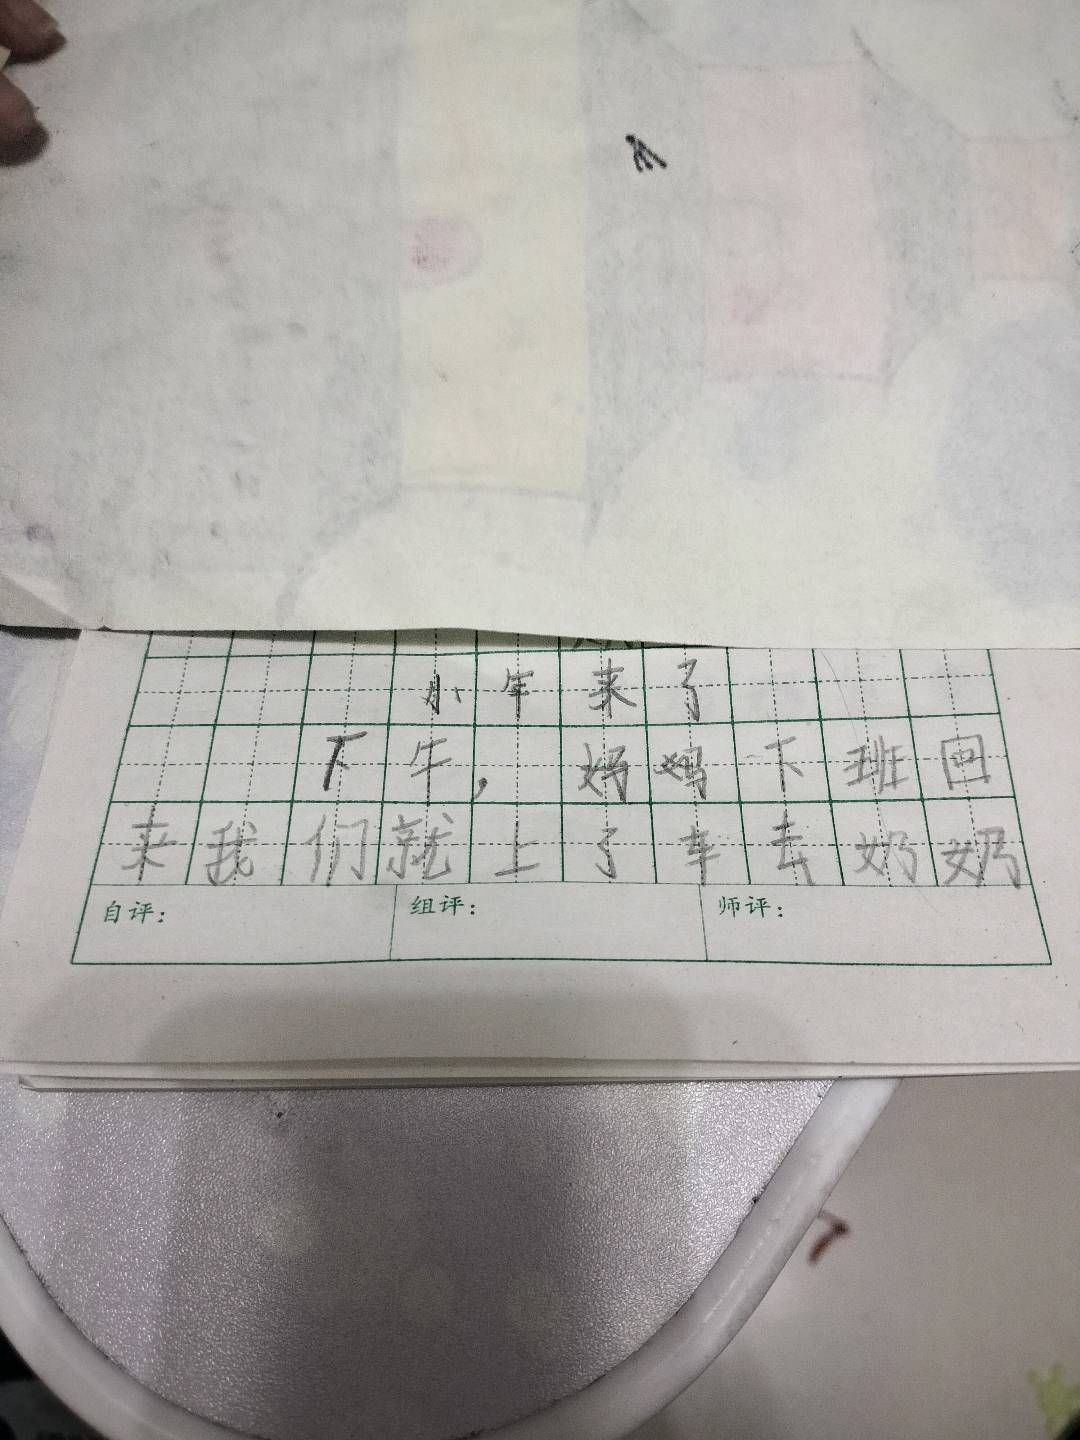 小年来了
下午，妈妈下班回
来我们就上了车去奶奶
自评：
组评：
师评：